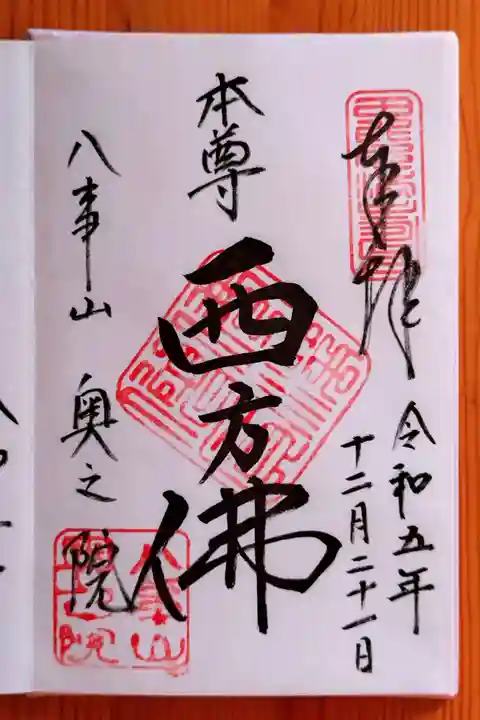 奉拝
令和五年
十二月二十一日
本尊
西方佛
八事山 奥之院
八事山